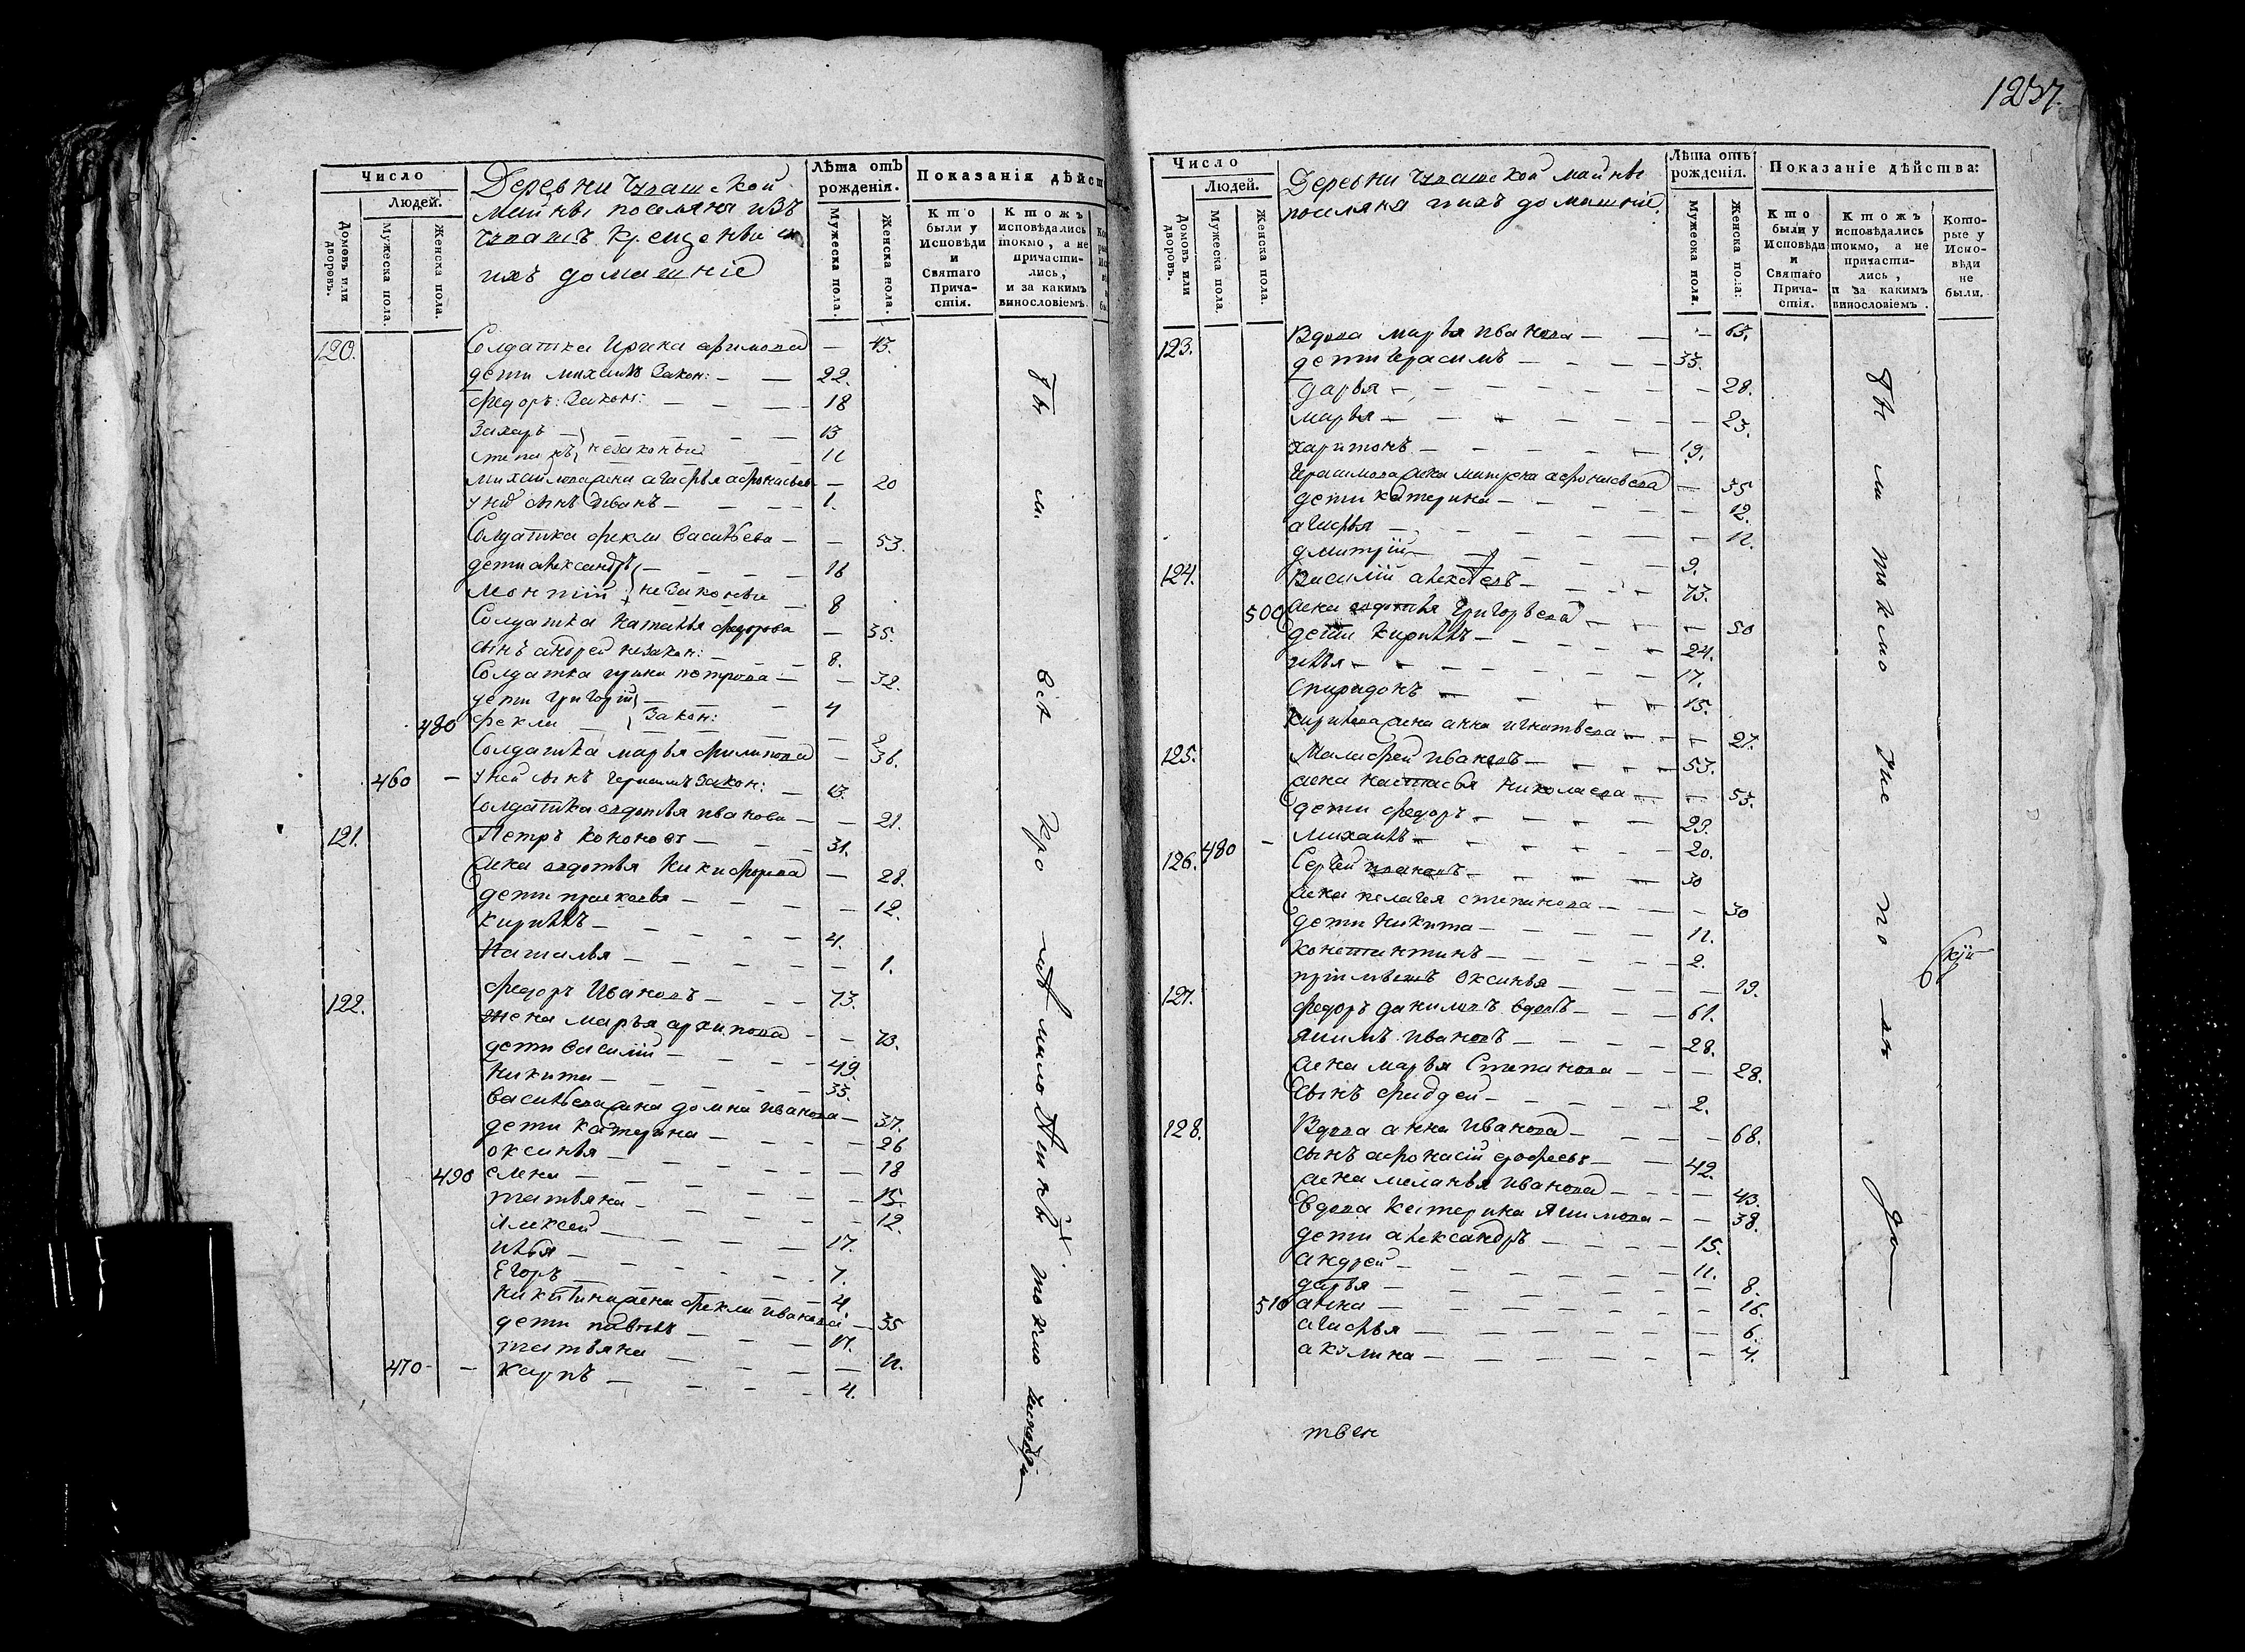 1237
Число
Людей.
Домовъ или дворовъ.
Мужеска пола.
Женска пола.
Деревни Чювашской
Майны поселяня изъ
Чювашъ крещены и
ихъ домашніе
Лѣта отъ рожденія.
Мужеска пола.
Женска пола.
Показанія дѣйс
Кто были у Исповѣди и Святаго Прича-стія.
Ктожъ исповѣдались токмо, а не причасти-лись, и за какимъ винословіемъ.
120. Солдатка Ирина ефимова — 43.
дети михаилъ Закон: — — 22.
федоръ: Закон: — 18
Захаръ — 13
степанъ незаконны 11
михайлова жена агафья афонасьева — 20
у ней сынъ Иванъ — 1.
Солдатка фекла Васильева — 53.
дети александръ — 16
незаконны — 8
Солдатка Наталья федорова — 35.
сынъ андрей незакон: — 8.
Солдатка ирина петрова — 32.
дети григорій — 4
480 фекла — Закон: — 2
Солдатка марья филипова — 36.
460 — у ней сынъ герасимъ Закон: — 13.
Солдатка авдотья иванова — 21.
121. Петръ кононовъ — 31.
жена авдотья Никифорова — 28.
дети прасковья — 12.
кирилъ — 4.
Наталья — 1.
122. федоръ Ивановъ — 73.
жена марья архипова — 73.
дети василій — 49.
Никита — 33.
васильева жена домна иванова — 37.
дети катерина — 26
оксинья — 18
490 елена — 15.
татьяна — 12.
Алексей — 17.
илья — 7.
Егоръ — 4.
Никитина жена фекла иванова — 35
дети павелъ — 11.
татьяна — 11.
470 — карпъ — 4.
Тѣ м. всѣ кро токмо исповѣди
Число
Людей.
Домовъ или дворовъ.
Мужеска пола,
Женска пола.
Деревни Чювашской майны
поселяня ихъ домашніе
Лѣта отъ рожденія.
Мужеска пола.
Женска пола:
Показаніе дѣйства:
Кто были у Исповѣди и Святаго Прича-стія.
Ктожъ исповѣдались токмо, а не причасти-лись, и за какимъ винословіемъ.
Кото-рые у Испо-вѣди не были.
123. Вдова марья иванова — 63.
дети герасимъ — 33.
дарья — 28.
марья — 23.
харитонъ — 19.
герасимова жена матрена афонасьева — 35
дети катерина — 12.
агафья — 11.
дмитрій — 9.
124. Василій алексеевъ — 73.
500 жена авдотья григорьева — 50
дети кирилъ — 24.
илья — 17.
спиридонъ — 15.
кирилова жена анна игнатьева — 27.
125. Малафей ивановъ — 53.
жена настасья николаева — 53.
дети федоръ — 23.
480 — михаилъ — 20.
126. Сергей ивановъ — 30
жена пелагея степанова — 30
дети никита — 11.
константинъ — 2.
пріимышъ оксинья — 19.
127. федоръ даниловъ вдовъ — 61.
якимъ ивановъ — 28.
жена марья Степанова — 28.
сынъ фаддей — 2.
128. Вдова анна Иванова — 68.
сынъ афонасій ерофеевъ — 42.
жена меланья иванова — 43.
вдова катерина якимова — 38.
дети александръ — 15.
андрей — 11.
дарья — 8.
510 анна — 16.
агафья — 6.
акулина — 4.
Тѣ мъ токмо
твен